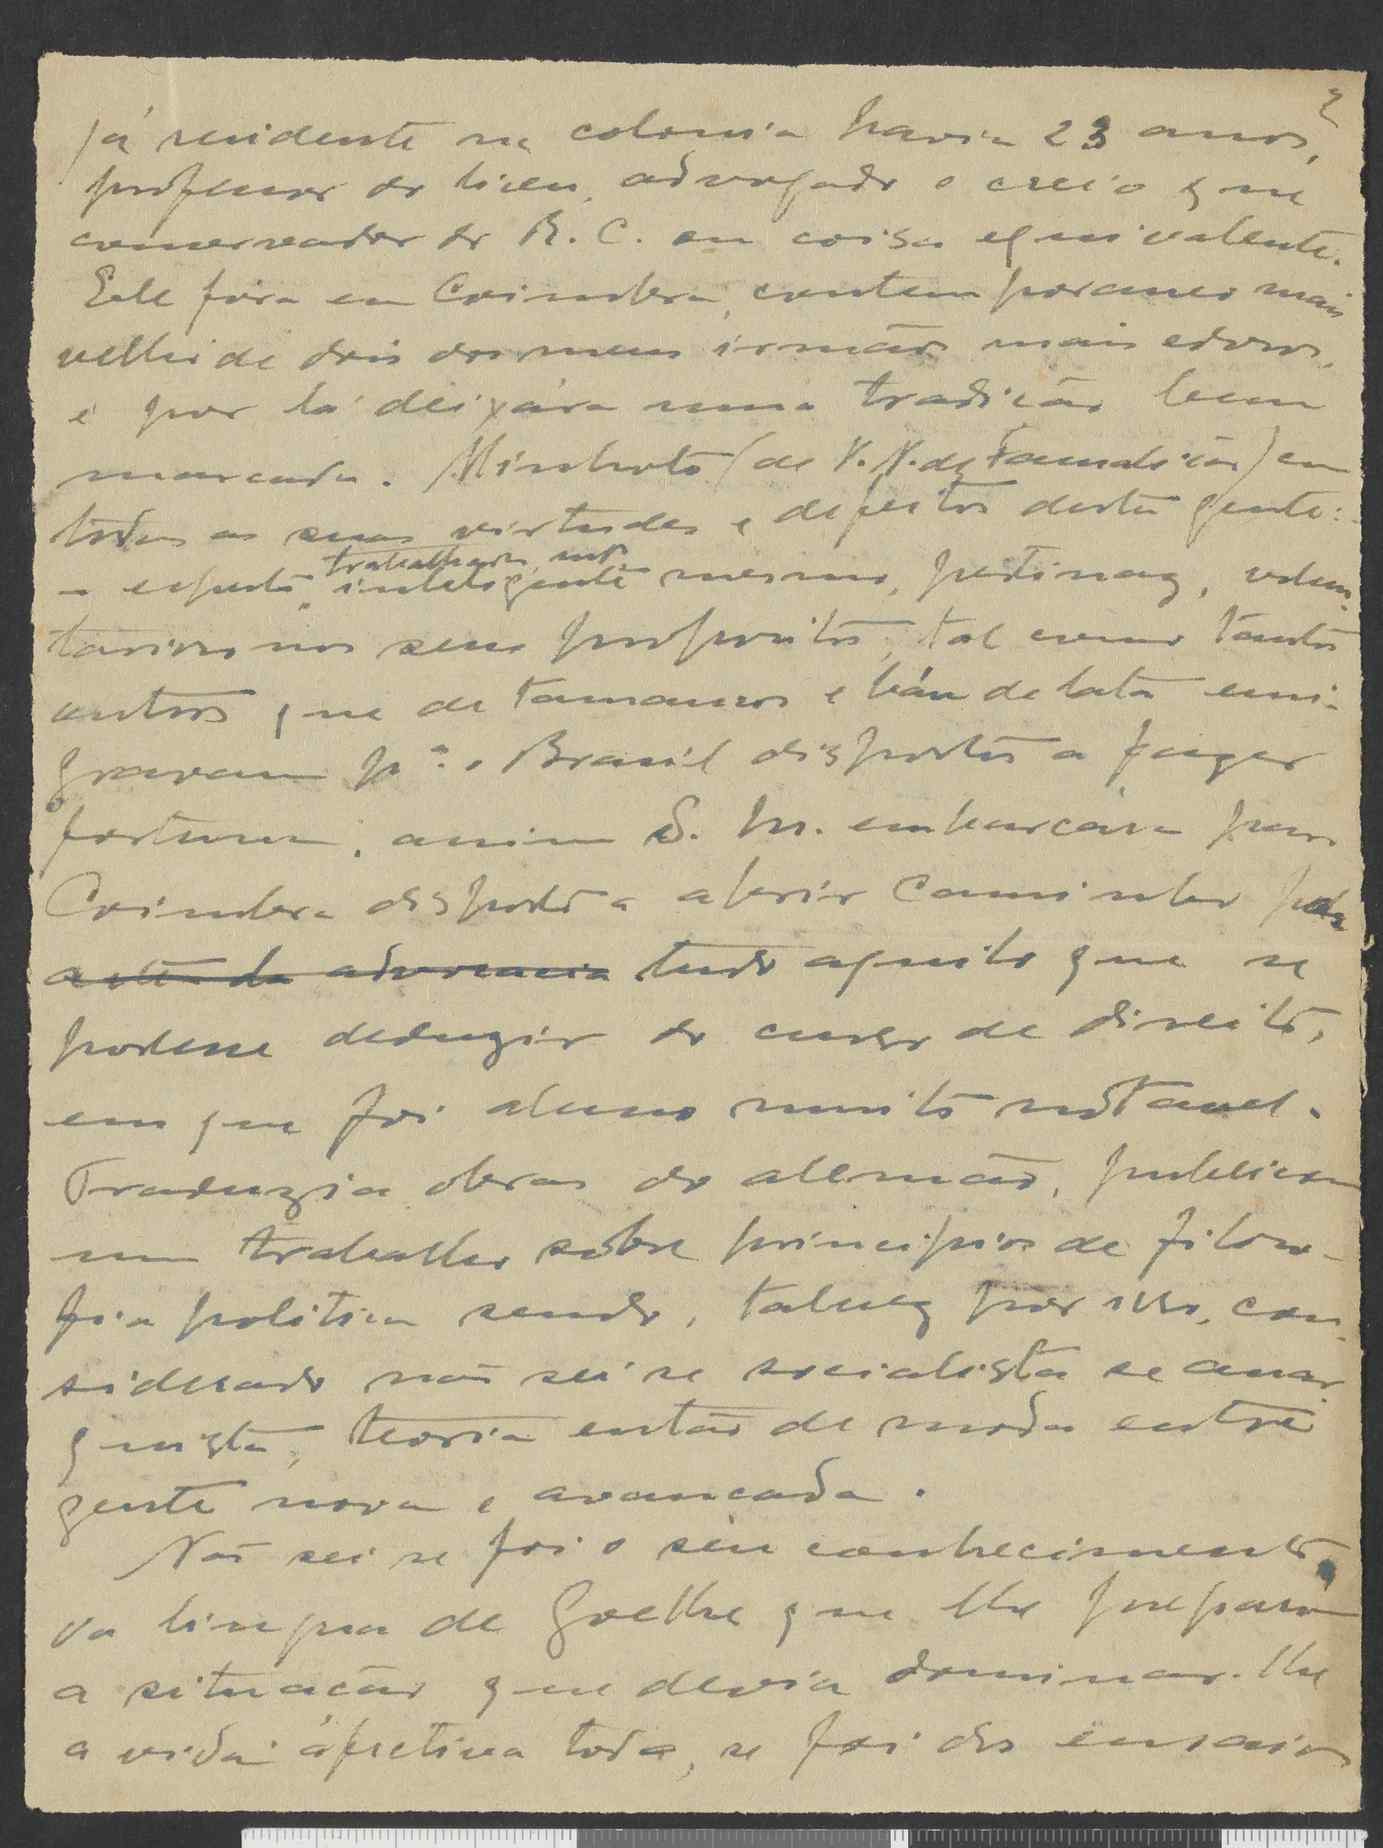 2
já residente na colonia havia 23 anos,
professor do liceu, advogado e creio que
conservador do R. C. ou coisa equivalente.
Ele fôra em Coimbra, contemporaneo mais
velho de dois dos meus irmãos mais edosos,
e por lá deixára uma tradição bem
marcada. Minhoto (de V. N. de Famalicão) em
todas as suas virtudes e defeitos desta gente:
trabalhador, mto
- esperto, inteligente mesmo, pertinaz, volun-
tarioso nos seus propositos, tal como tantos
outros que de tamancos e baú de lata emi-
gravam pª o Brasil dispostos a fazer
fortuna, assim S. M. embarcára para
Coimbra disposto a abrir caminho por
advocacia tudo aquilo que se
podesse deduzir do curso de direito,
em que foi aluno muito notavel.
Traduzia obras do alemão, publicou
um trabalho sobre principios de filoso-
fia politica sendo, talvez por isso, con-
siderado não sei se socialista se anar-
quista, teoria então de moda entre
gente nova e avançada.
Não sei se foi o seu conhecimento
da lingua de Goethe que lhe preparou
a situação que devia dominar-lhe
a vida afectiva toda, se foi dos ensaios